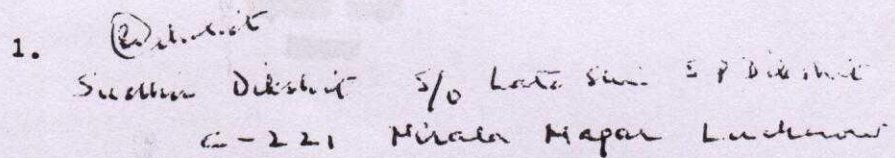 1. Dikshit
Sudhir Dikshit S/o Late Shri S P Dikshit
C-221 Nirala Nagar Lucknow